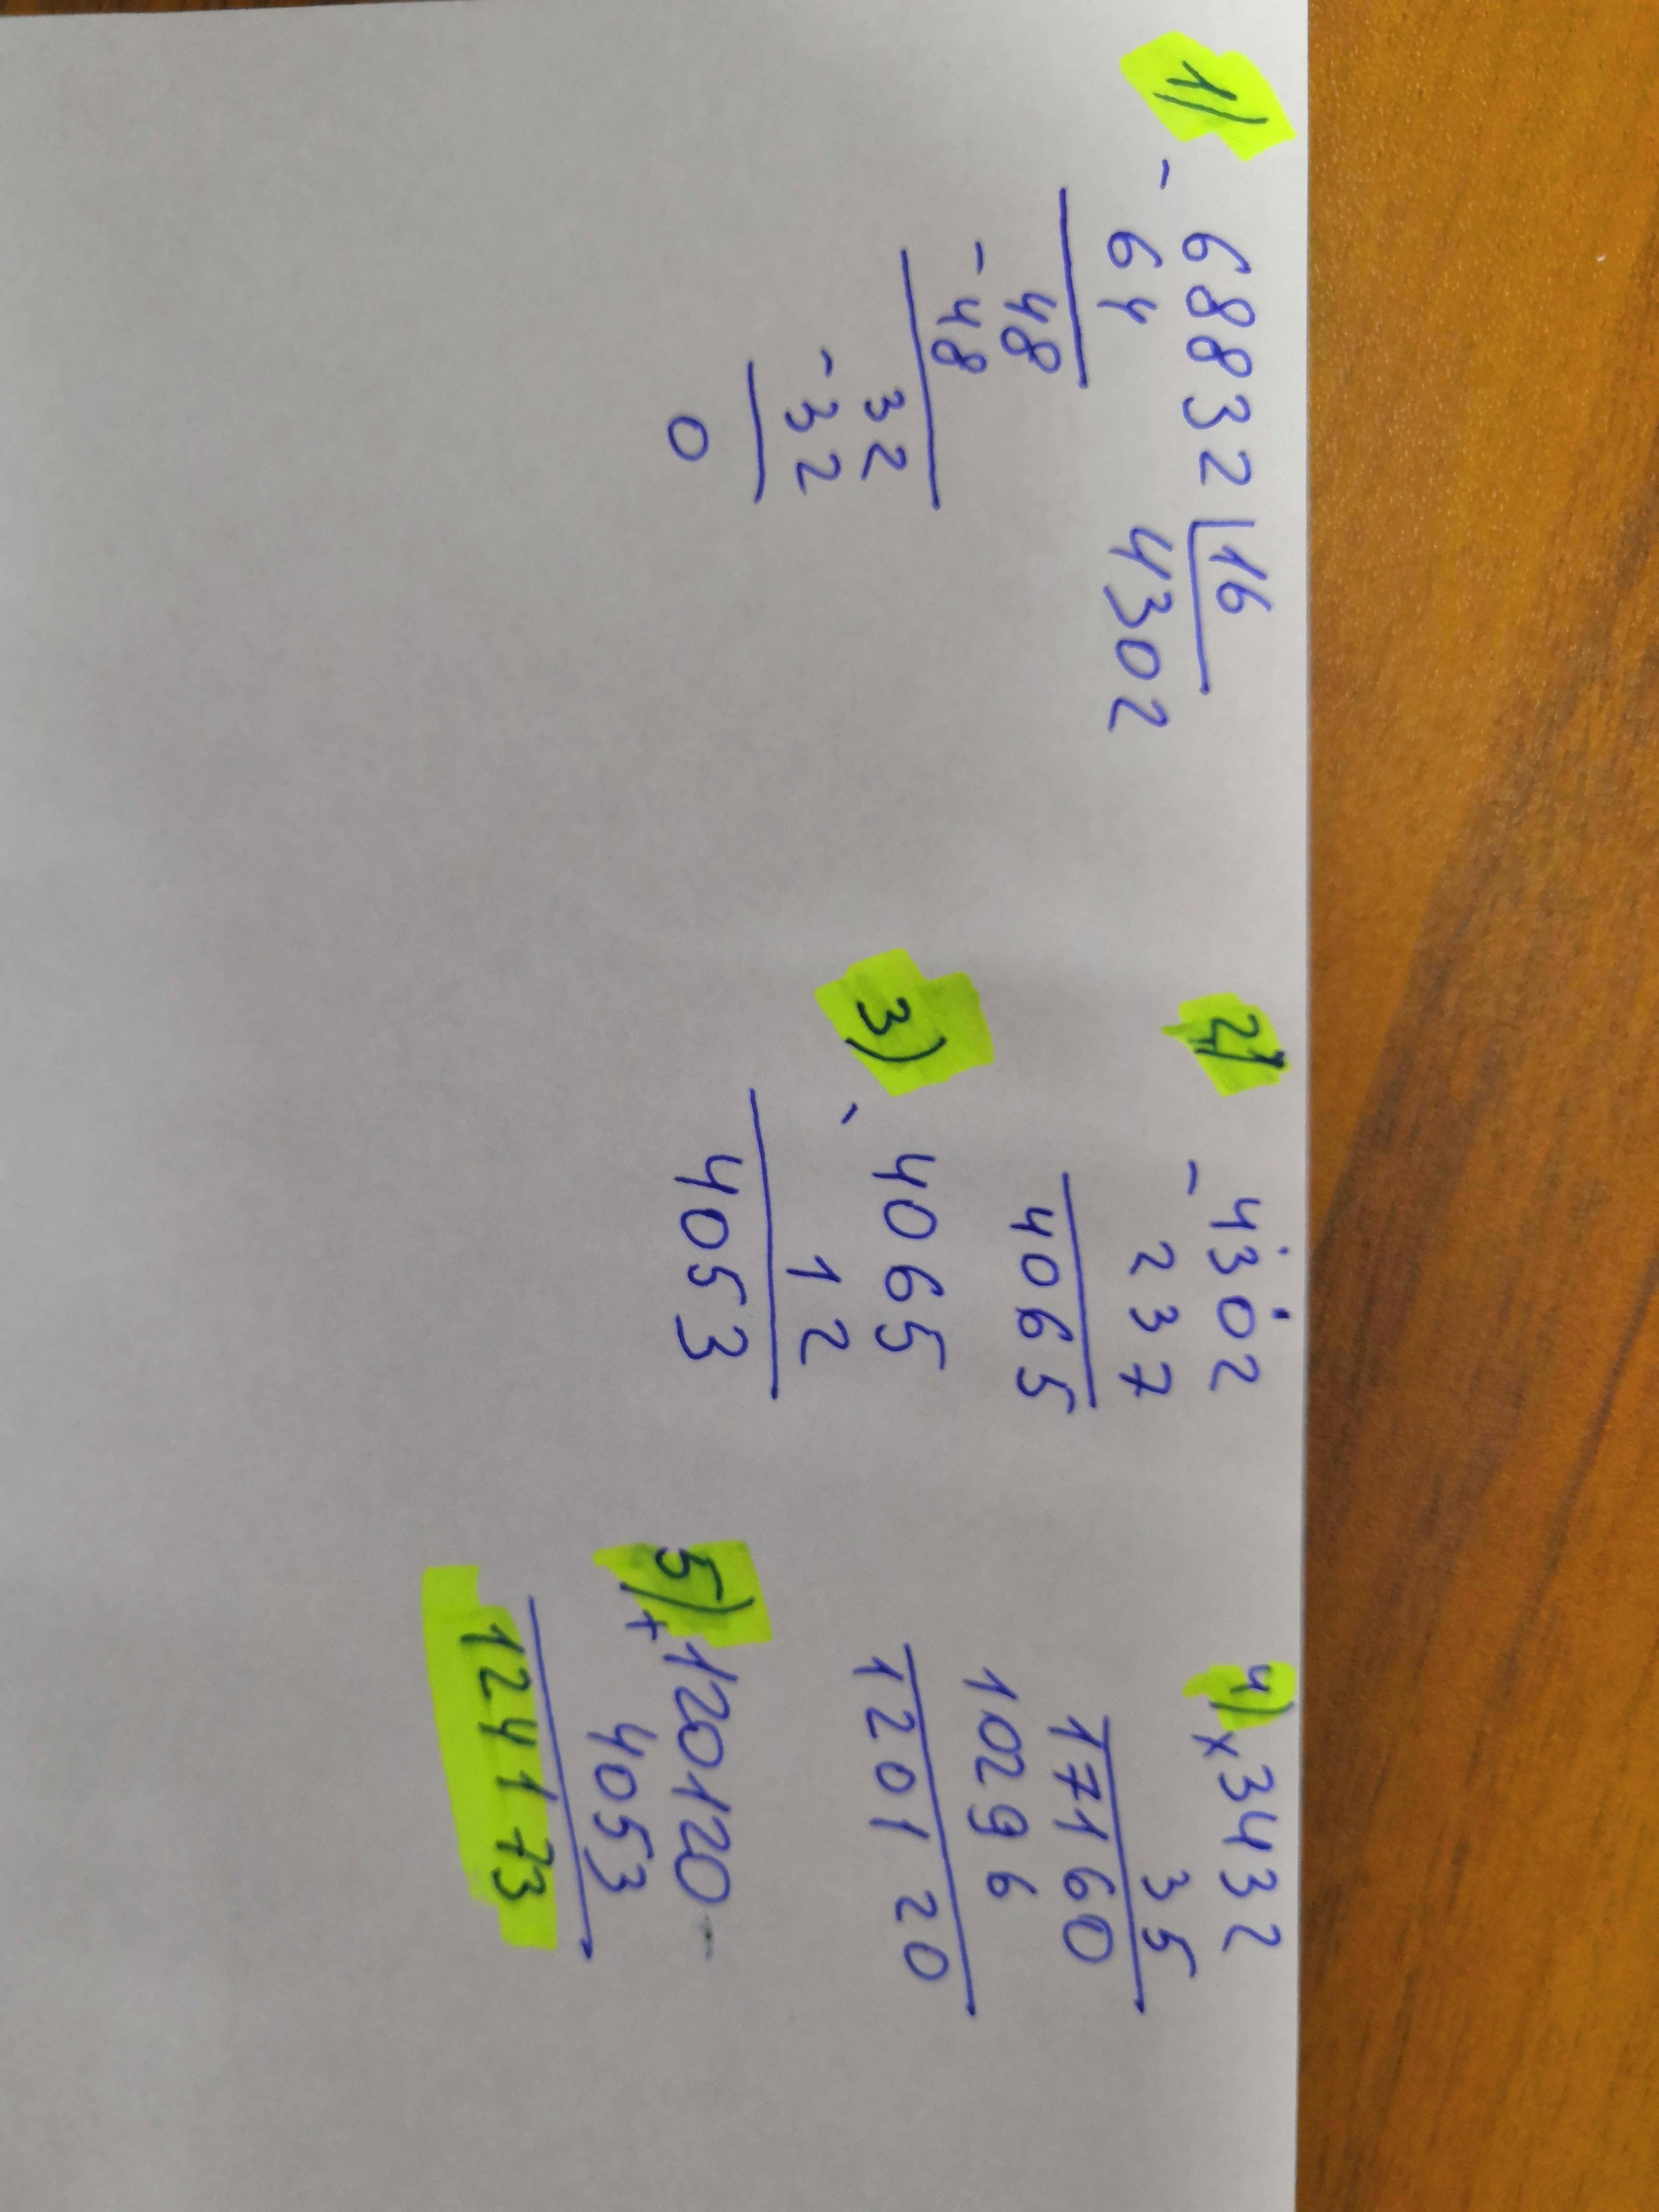 1) - 68832 | 16
64 4302
48
- 48
32
- 32
0
2) - 4302
237
4065
3) - 4065
12
4053
4) x 3432
35
17160
10296
120120
5) + 120120
4053
124173